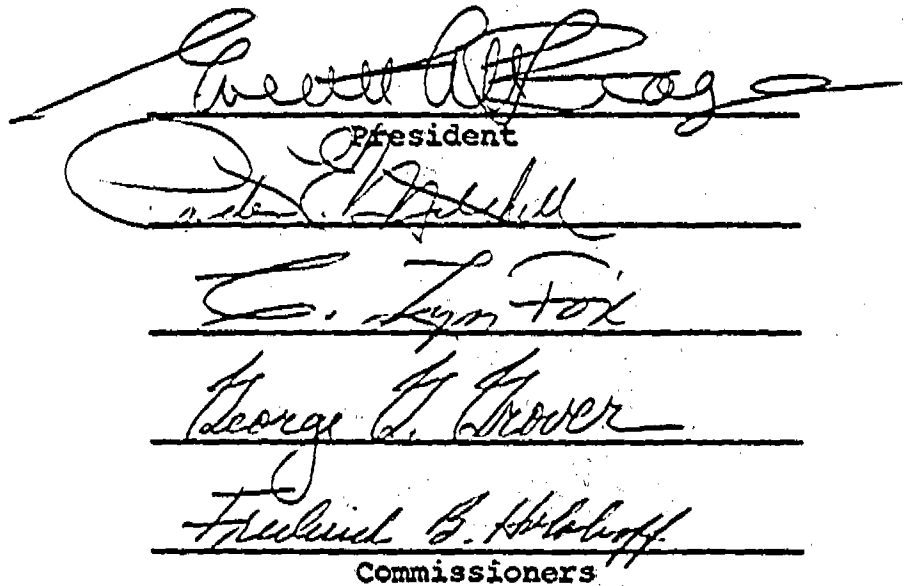 Everett
President
E. Mitchell
C. Lyn Fox
George G. Grover
Frederick B. Holoboff
Commissioners